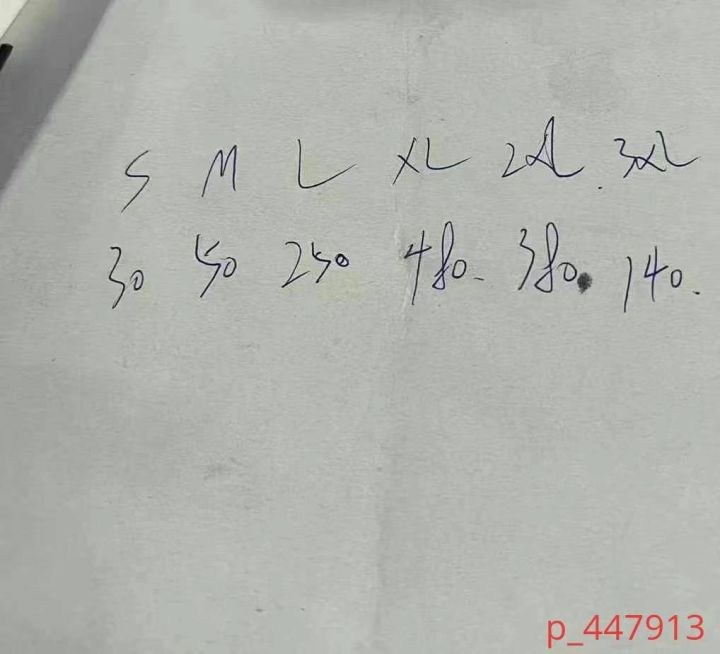 S M L XL 2XL 3XL
30 50 250 480 380 140
p_447913